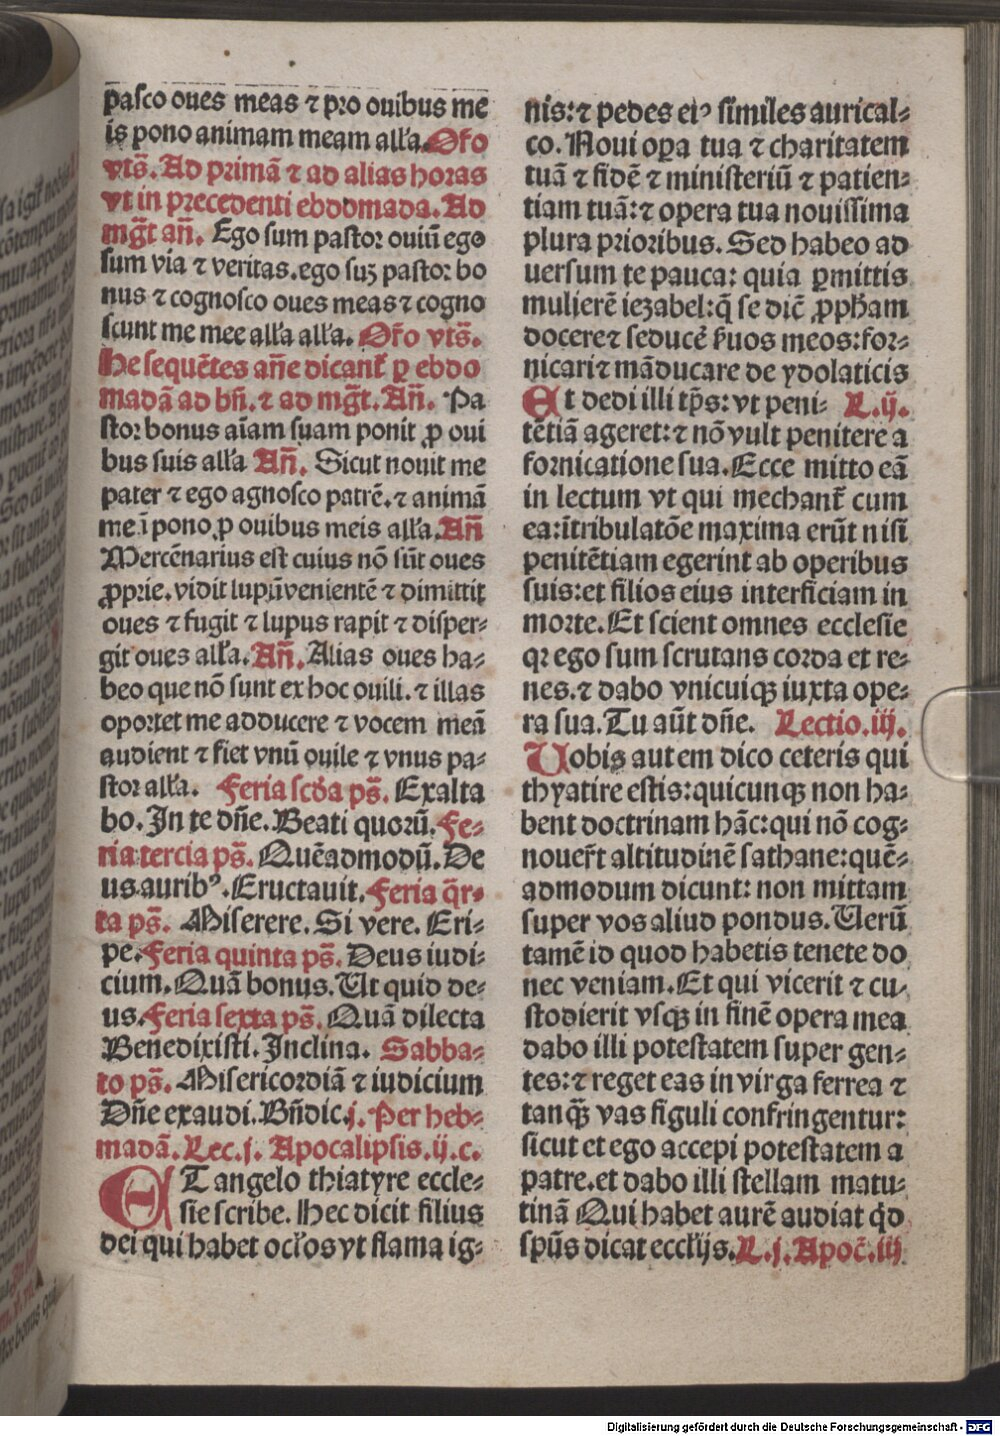 pasco oues meas ⁊ pro ouibus me
is pono animam meam alľa. Oŕo
vts̄. Ad primā ⁊ ad alias horas
vt in precedenti ebdomada. Ad
mg̃t añ. Ego sum pastor ouiū ego
sum via ⁊ veritas. ego suꝫ pastor bo
nus ⁊ cognosco oues meas ⁊ cogno
scunt me mee alľa alľa. Oŕo vts̄.
He sequētes añe dicant̃ ꝑ ebdo
madā ad bñ. ⁊ ad mg̃t. Añ. Pa
stor bonus aīam suam ponit ꝓ oui
bus suis alľa Añ. Sicut nouit me
pater ⁊ ego agnosco patrē. ⁊ animā
meī pono ꝓ ouibus meis alľa. Añ
Mercēnarius est cuius nō sūt oues
ꝓprie. vidit lupū venientē ⁊ dimittit
oues ⁊ fugit ⁊ lupus rapit ⁊ disper⸗
git oues alľa. Añ. Alias oues ha⸗
beo que nō sunt ex hoc ouili. ⁊ illas
oportet me adducere ⁊ vocem meā
audient ⁊ fiet vnū ouile ⁊ vnus pa⸗
stor alľa. Feria scďa ps̄. Exalta
bo. In te dñe. Beati quorū. Fe⸗
ria tercia ps̄. Quēadmodū. De
us aurib⁹. Eructauit. Feria q̄r⸗
ta ps̄. Miserere. Si vere. Eri⸗
pe. Feria quinta ps̄. Deus iudi⸗
cium. Quā bonus. Ut quid de⸗
us. Feria sexta ps̄. Quā dilecta
Benedixisti. Inclina. Sabba⸗
to ps̄. Misericordiā ⁊ iudicium
Dñe exaudi. Bñdic. j. Per heb⸗
madā. Lec. j. Apocalipsis. ij. c.
ET angelo thiatyre eccle⸗
sie scribe. Hec dicit filius
dei qui habet ocľos vt flama ig⸗
nis: ⁊ pedes ei⁹ similes aurical⸗
co. Noui oꝑa tua ⁊ charitatem
tuā ⁊ fidē ⁊ ministeriū ⁊ patien⸗
tiam tuā: ⁊ opera tua nouissima
plura prioribus. Sed habeo ad
uersum te pauca: quia ꝑmittis
mulierē iezabel: q̄ se dic̄ ꝓpħam
docere ⁊ seducē ẜuos meos: for⸗
nicari ⁊ māducare de ydolaticis
Et dedi illi tp̄s: vt peni⸗ L. ij.
tētiā ageret: ⁊ nō vult penitere a
fornicatione sua. Ecce mitto eā
in lectum vt qui mechant̃ cum
ea: ī tribulatōe maxima erūt nisi
penitētiam egerint ab operibus
suis: et filios eius interficiam in
morte. Et scient omnes ecclesie
qꝛ ego sum scrutans corda et re⸗
nes. ⁊ dabo vnicuiqꝫ iuxta ope⸗
ra sua. Tu aūt dñe. Lectio. iij.
Uobis autem dico ceteris qui
thyatire estis: quicunqꝫ non ha⸗
bent doctrinam hāc: qui nō cog⸗
nouer̃t altitudinē sathane: quē⸗
admodum dicunt: non mittam
super vos aliud pondus. Uerū
tamē id quod habetis tenete do
nec veniam. Et qui vicerit ⁊ cu⸗
stodierit vsqꝫ in finē opera mea
dabo illi potestatem super gen⸗
tes: ⁊ reget eas in virga ferrea ⁊
tanqꝫ̄ vas figuli confringentur:
sicut et ego accepi potestatem a
patre. et dabo illi stellam matu⸗
tinā Qui habet aurē audiat qd̓
spūs dicat eccľijs. L. j. Apoc̄. iij
Digitalisierung gefördert durch die Deutsche Forschungsgemeinschaft - DFG